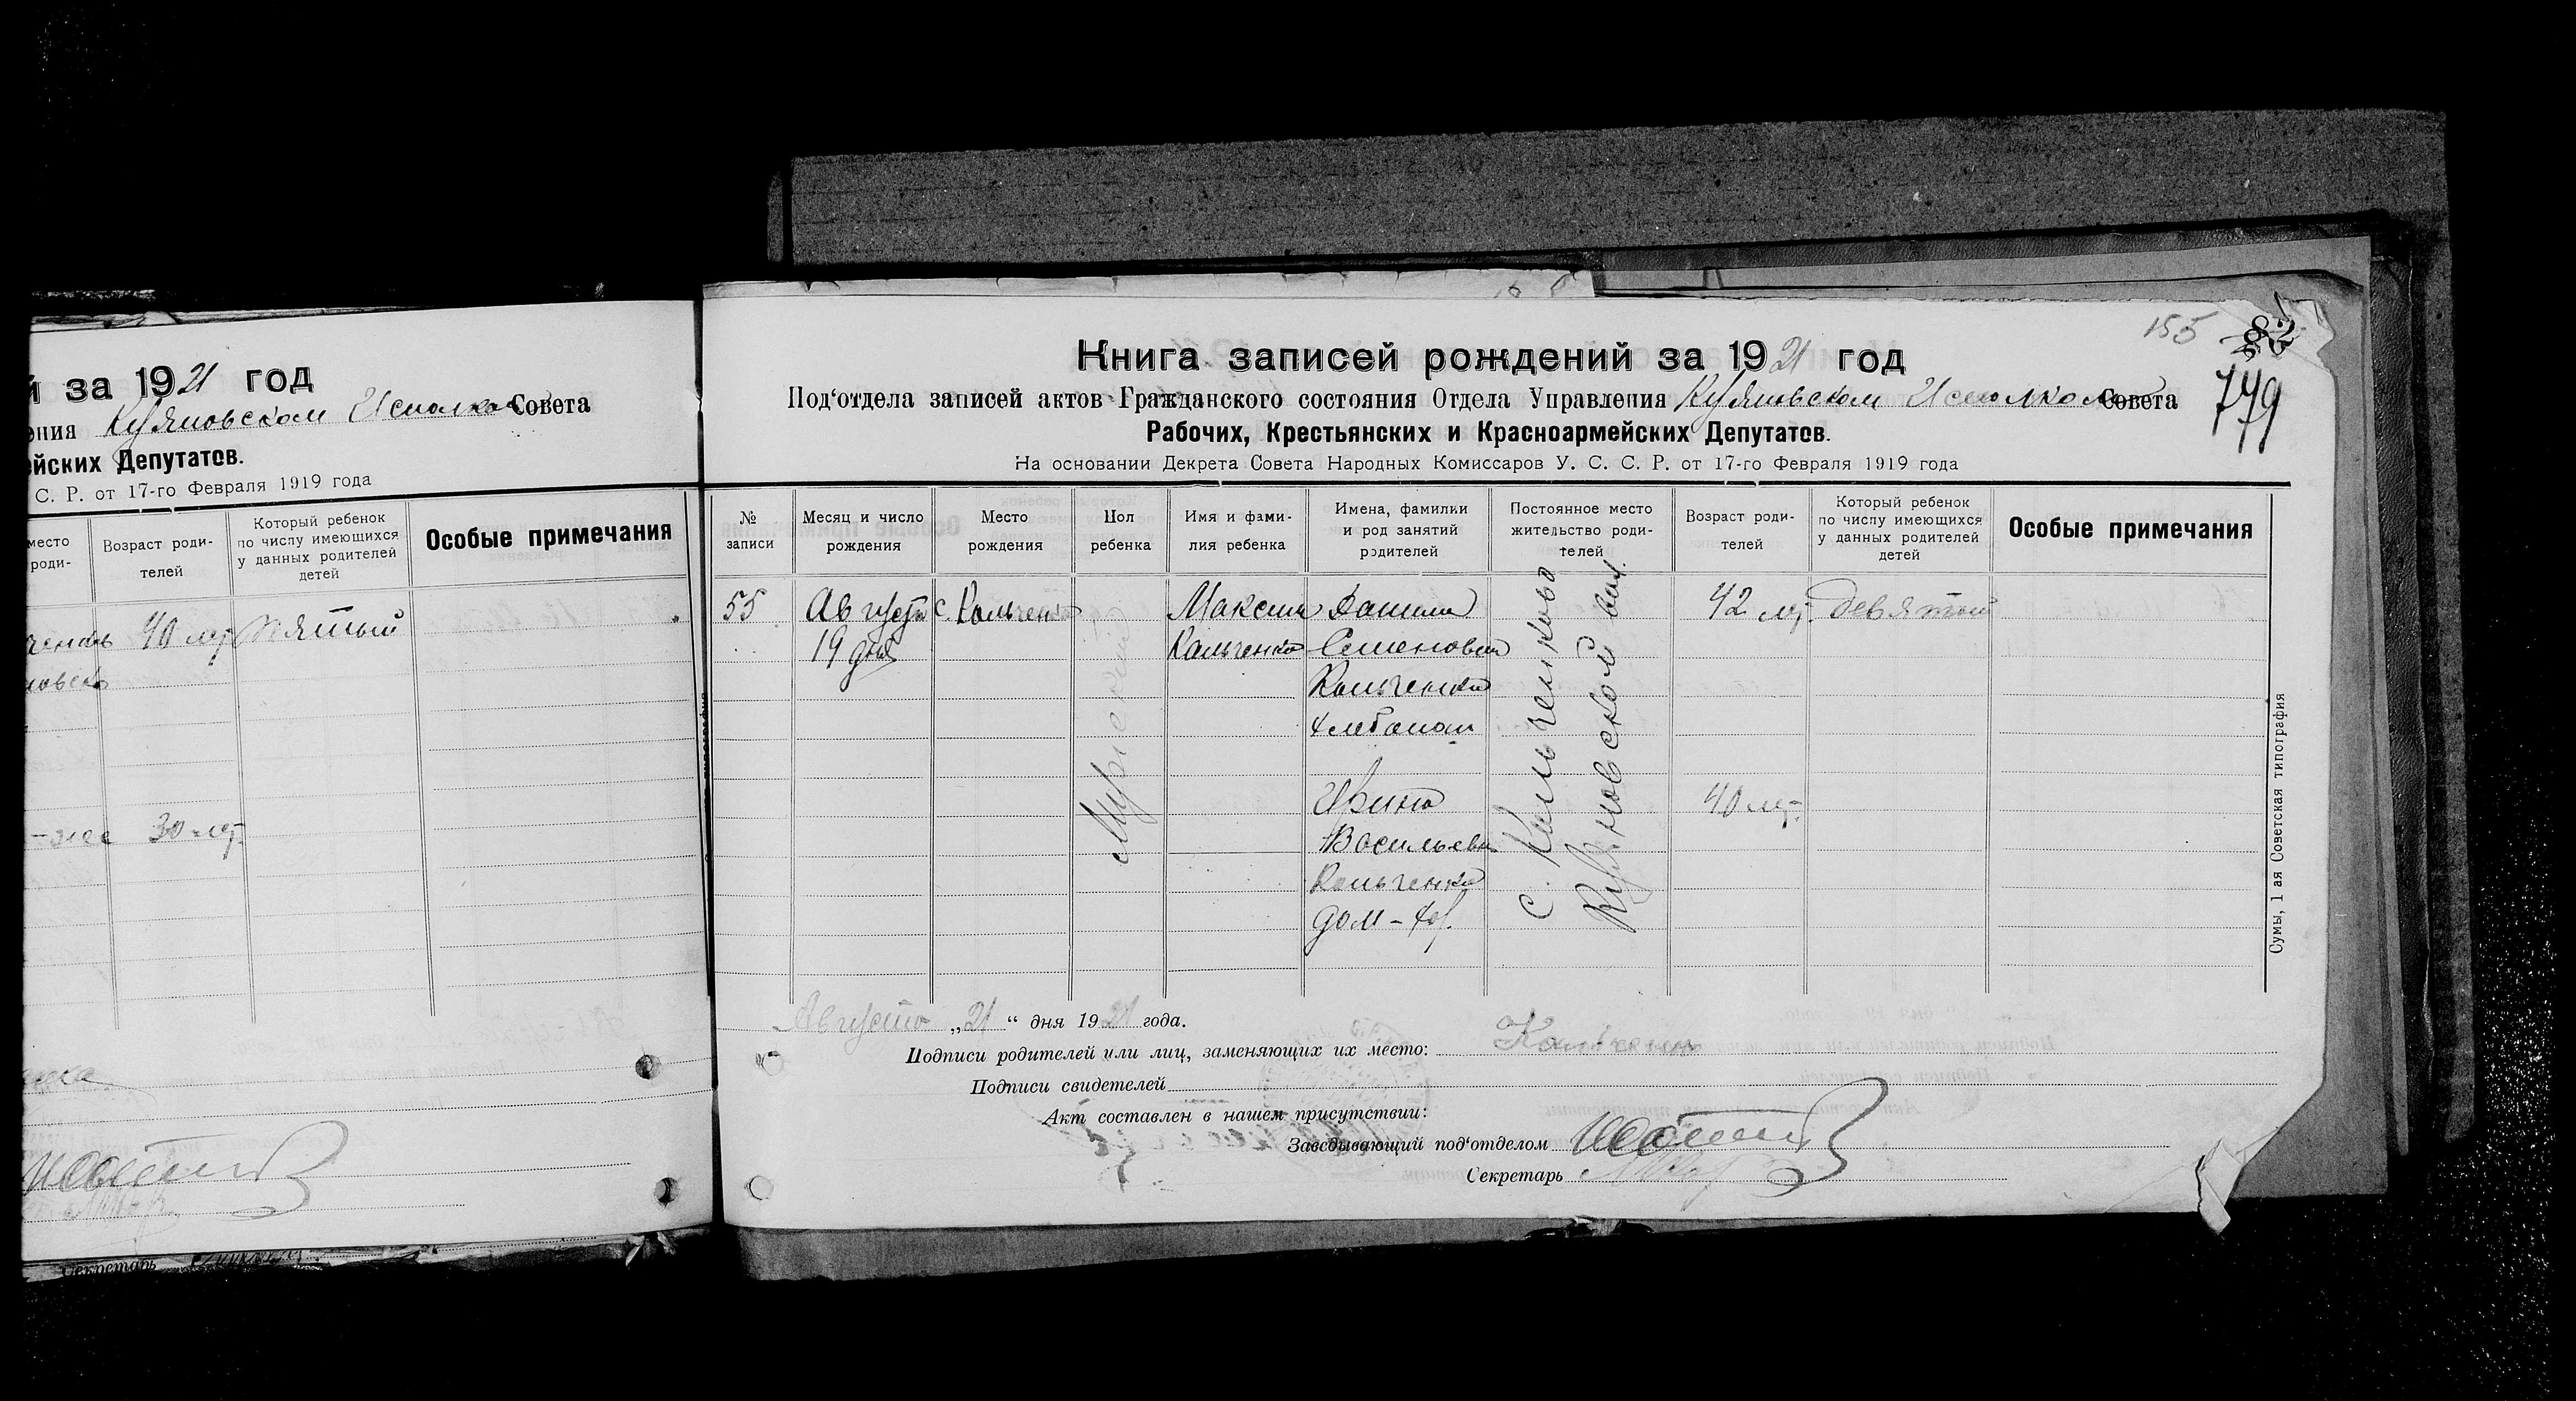 за 1921 год
Совета
Депутатов.
С. Р. от 17-го Февраля 1919 года
место
роди-
Возраст роди-
телей
Который ребенок
по числу имеющихся
у данных родителей
детей
Особые примечания
40 лет
пятый
30 лет
Секретарь
155
82
779
Книга записей рождений за 1921 год
Под'отдела записей актов Гражданского состояния Отдела Управления Исполком Совета
Рабочих, Крестьянских и Красноармейских Депутатов.
На основании Декрета Совета Народных Комиссаров У. С. С. Р. от 17-го Февраля 1919 года
№
записи
Месяц и число
рождения
Место
рождения
Пол
ребенка
Имя и фами-
лия ребенка
Имена, фамилки
и род занятий
родителей
Постоянное место
жительство роди-
телей
Возраст роди-
телей
Который ребенок
по числу имеющихся
у данных родителей
детей
Особые примечания
55
Августа
19 дня
с.
Мужеский
Максим
Кальченко
Данило
Семенович
Кальченко
хлебопаш
Ирина
Васильевна
Кальченко
дом-хоз.
С.
вол.
42 лет
40 лет
девятый
Августа „21“ дня 1921 года.
Подписи родителей или лиц, заменяющих их место: Кальченко
Подписи свидетелей
Акт составлен в нашем присутствии:
Заведывающий под'отделом
Секретарь
Сумы, 1 ая Советская типография